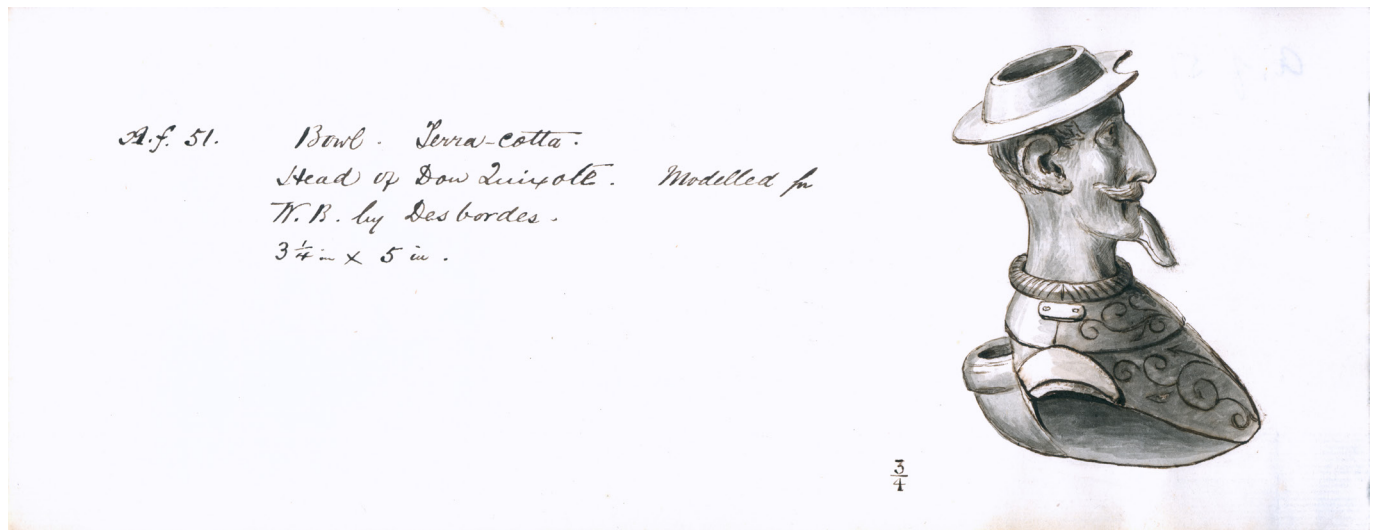 A.f. 51. Bowl. Terra-cotta.
Head of Don Quixote. Modelled for
W. B. by Desbordes.
3 1/4 in x 5 in.
3/4